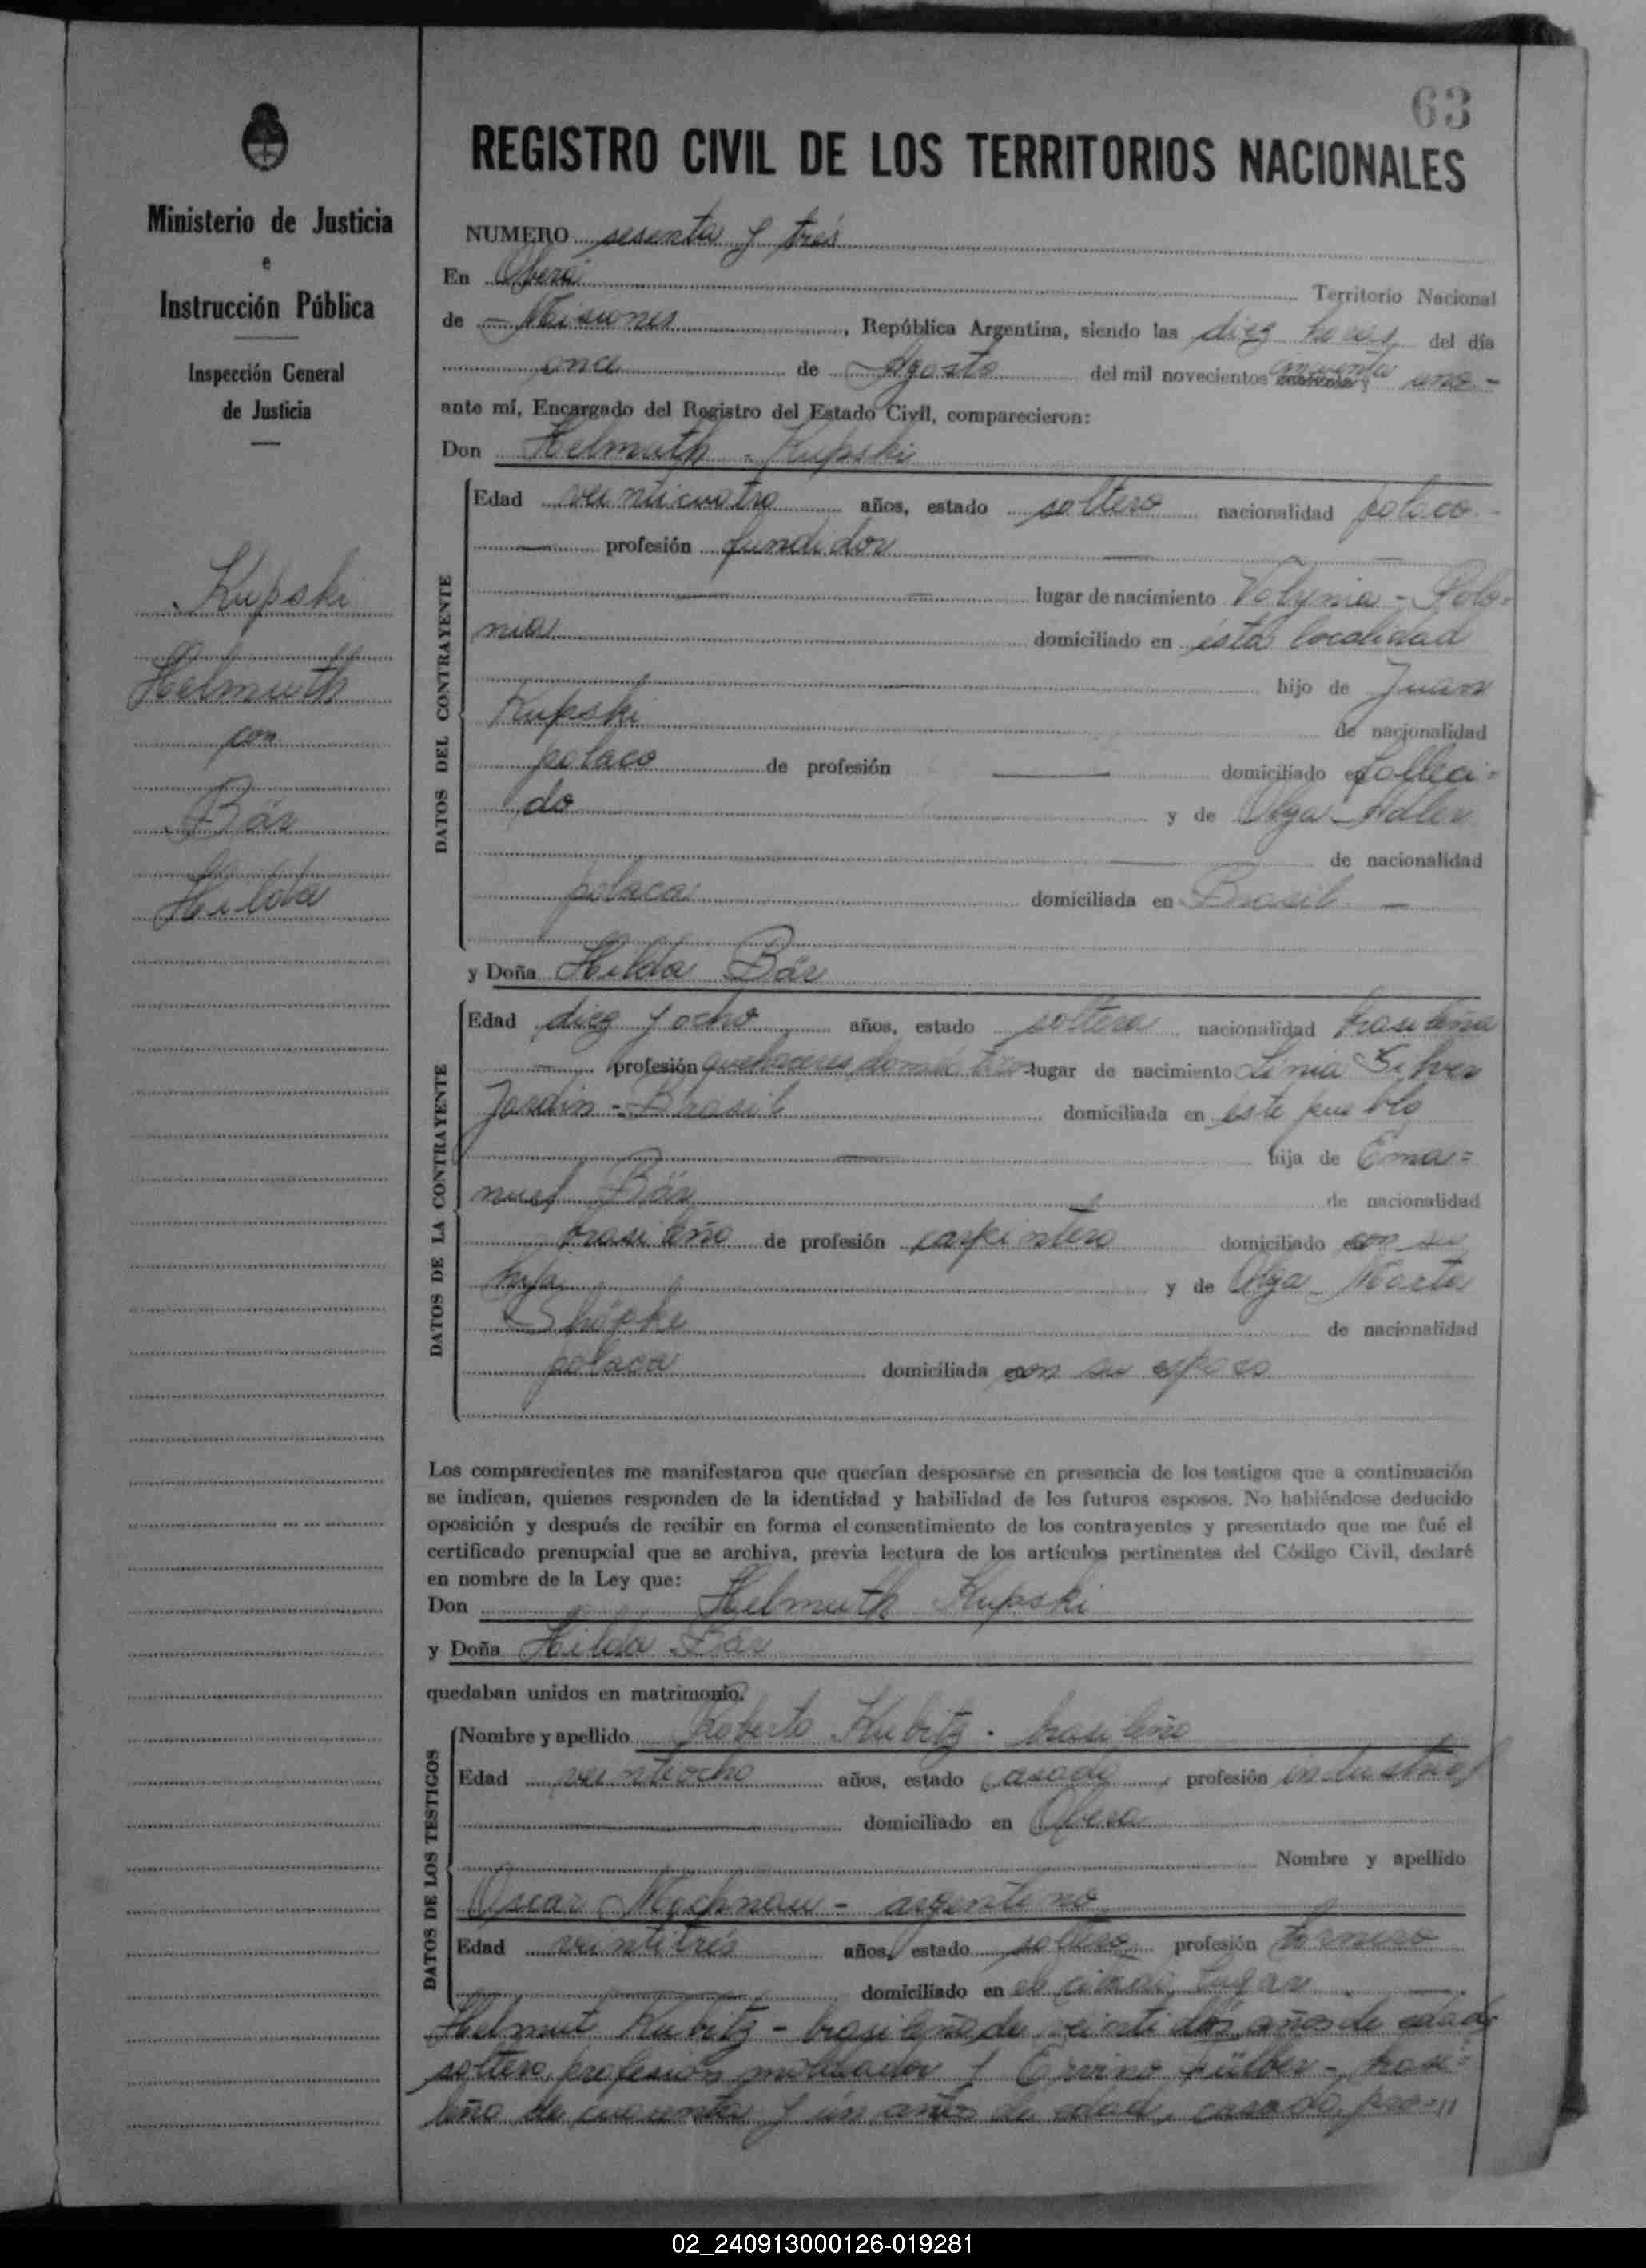 63
REGISTRO CIVIL DE LOS TERRITORIOS NACIONALES
Ministerio de Justicia
e
Instrucción Pública
Inspección General
de Justicia
Kupski
Helmuth
con
Bär
Hilda
NUMERO sesenta y tres
En Oberá Territorio Nacional
de Misiones, República Argentina, siendo las diez horas del día
once de Agosto del mil novecientos cincuenta y uno -
ante mí, Encargado del Registro del Estado Civil, comparecieron:
Don Helmuth Kupski
DATOS DEL CONTRAYENTE
Edad veinticuatro años, estado soltero nacionalidad polaco
profesión fundidor
lugar de nacimiento Volynia - Polo=
nia domiciliado en ésta localidad
hijo de Juan
Kupski de nacionalidad
polaco de profesión — domiciliado en falleci=
do y de Olga Adler
de nacionalidad
polaca domiciliada en Brasil —
y Doña Hilda Bär
DATOS DE LA CONTRAYENTE
Edad diez y ocho años, estado soltera nacionalidad brasileña
profesión quehaceres domésticos lugar de nacimiento Linia Silver
Jardin - Brasil domiciliada en este pueblo
hija de Ema=
nuel Bär de nacionalidad
brasileño de profesión carpintero domiciliado con su
hija y de Olga Marta
Shöpke de nacionalidad
polaca domiciliada con su esposo
Los comparecientes me manifestaron que querían desposarse en presencia de los testigos que a continuación
se indican, quienes responden de la identidad y habilidad de los futuros esposos. No habiéndose deducido
oposición y después de recibir en forma el consentimiento de los contrayentes y presentado que me fué el
certificado prenupcial que se archiva, previa lectura de los artículos pertinentes del Código Civil, declaré
en nombre de la Ley que:
Don Helmuth Kupski
y Doña Hilda Bär
quedaban unidos en matrimonio.
DATOS DE LOS TESTIGOS
Nombre y apellido Roberto Kubitz - brasileño
Edad veintiocho años, estado casado, profesión industrial
domiciliado en Oberá
Nombre y apellido
Oscar - argentino
Edad veintitrés años, estado soltero profesión tornero
domiciliado en el citado lugar
Helmut Kubitz - brasileño, de veintidós años de edad,
soltero, profesión moldeador y Ervino - brasi=
leño de cuarenta y un años de edad, casado, pro-"
02_240913000126-019281